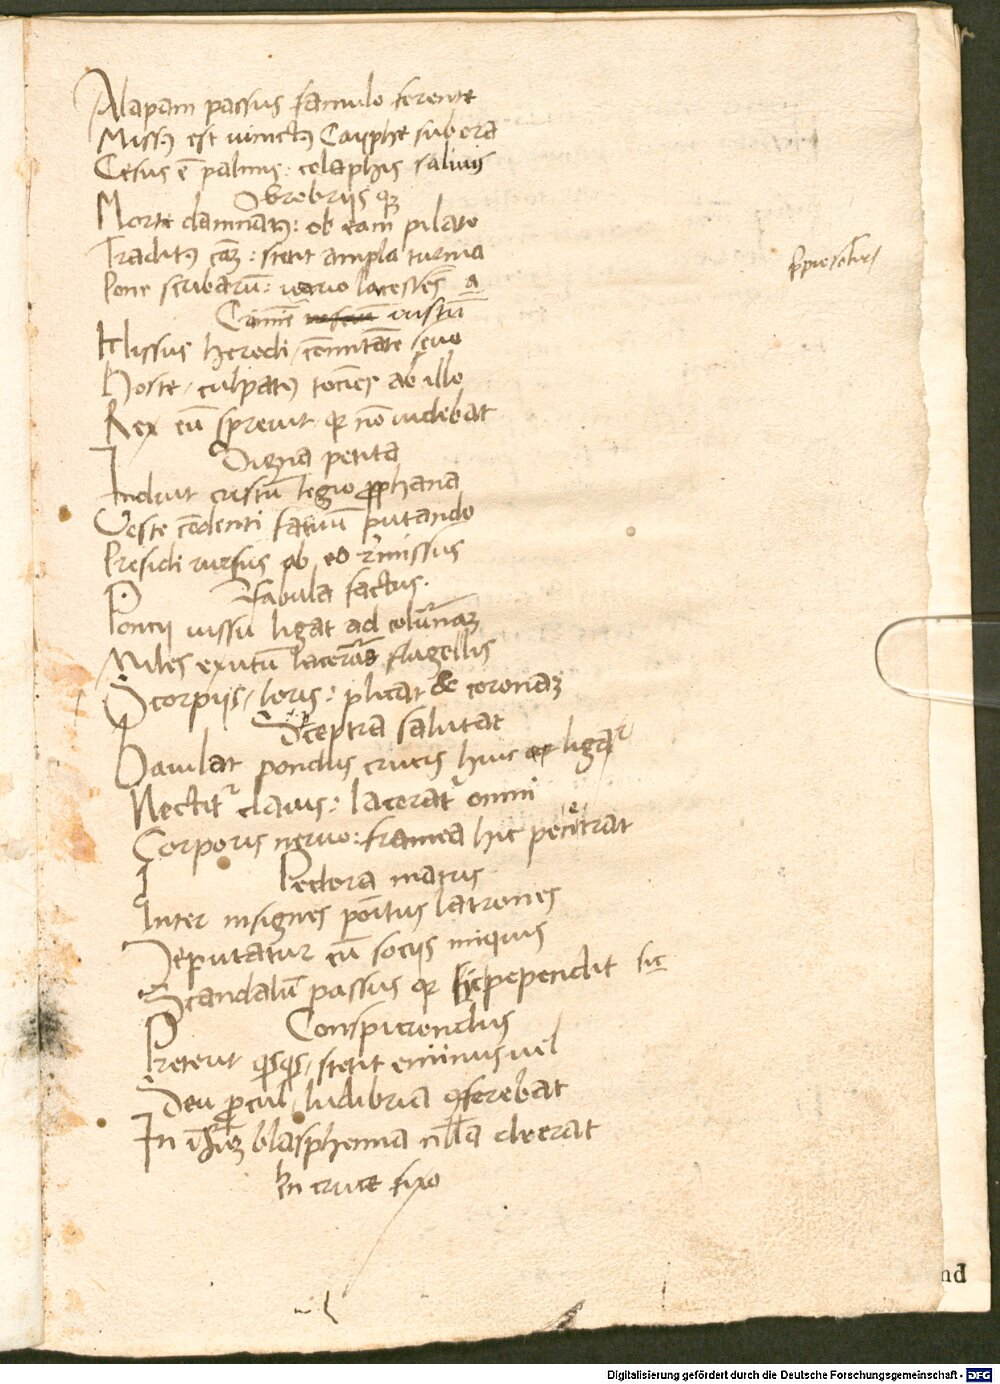 Alapam passus famulo ferente
Missꝰ est uinctꝰ Cayphe sub ora
Cesus ē palmis: colaphis saliuis
Obrobriis qꝫ
Morte damnatꝰ: ob eam pilato
Traditꝰ : stetit ampla turma
Pone scribarū: uerio lacessēs a
Crimīe iustū
Missus herodi / comitāte seuo
Hoste / culpatꝰ tocies ab illo
Rex eū spreuit qꝛ nō uidebat
Digna petita
Induit cristū legio prophana
Veste cādenti fatuū putando
Presidi rursus ob eo rmissus
Fabula factus.
Poncii iussu ligat ad columnaꝫ
Miles exutū lacerās flagellis
Scorpiis / loris: plicat & coronaꝫ
Sceptra salutat
Baiulat pondus crucis huic ligatʳ
Nectitʳ clauis: laceratʳ omni
Corporis neruo: framea hic penetrat
Pectora matris
Inter insignes positus latrones
Deputatur cū sociis iniquis
Scandalū passus qꝛ hic pependit sic
Conspuendus
Preteriit qsqs / stetit eminus uel
Seu procul / ludibria ꝯferebat
In blasphemia nll̄a deerat
In cruce fixo
nd
Digitalisierung gefördert durch die Deutsche Forschungsgemeinschaft - DFG